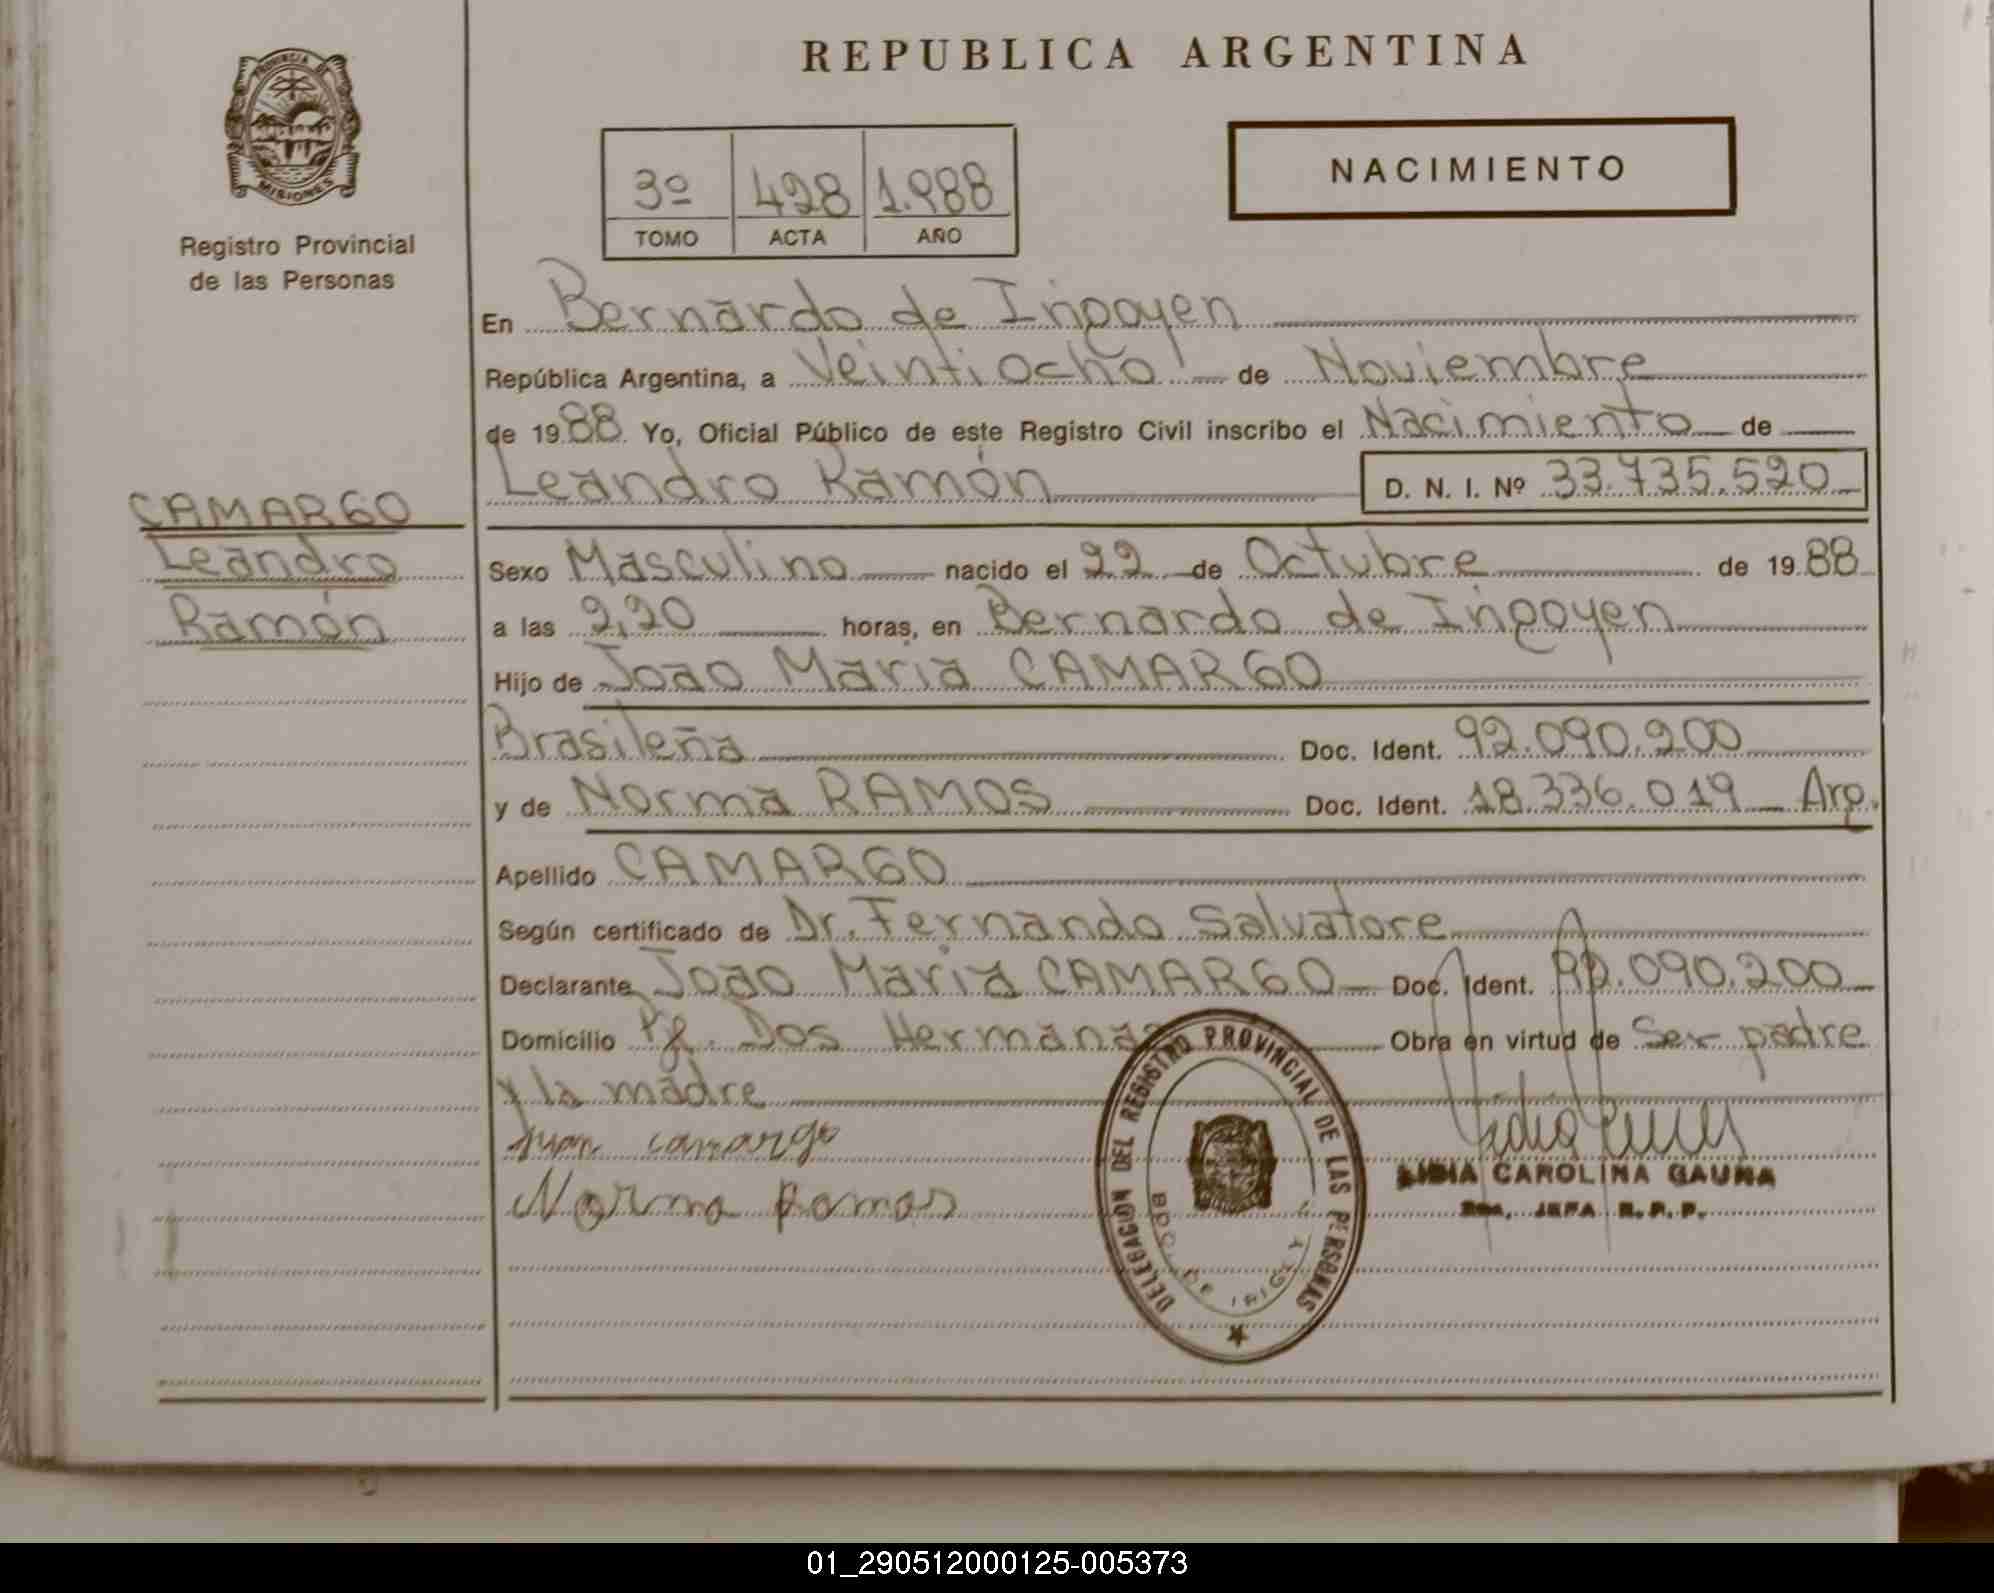 PROVINCIA DE
MISIONES
Registro Provincial
de las Personas
REPUBLICA ARGENTINA
3º 428 1.988
TOMO ACTA AÑO
NACIMIENTO
En Bernardo de Irigoyen
República Argentina, a Veintiocho de Noviembre
de 1988 Yo, Oficial Público de este Registro Civil inscribo el Nacimiento de
Leandro Ramón D. N. I. Nº 33.735.520
CAMARGO
Leandro
Ramón
Sexo Masculino nacido el 22 de Octubre de 1988
a las 2,20 horas, en Bernardo de Irigoyen
Hijo de Joao Maria CAMARGO
Brasileña Doc. Ident. 92.090.200
y de Norma RAMOS Doc. Ident. 18.336.019 Arg.
Apellido CAMARGO
Según certificado de Dr. Fernando Salvatore
Declarante Joao Maria CAMARGO Doc. Ident. 92.090.200
Domicilio Dos Hermanas Obra en virtud de Ser padre
y la madre
Juan camargo
Norma Ramos
DELEGACION DEL REGISTRO PROVINCIAL DE LAS PERSONAS
BDO. DE IRIGOYEN
LIDIA CAROLINA GAUNA
JEFA R. P. P.
01_290512000125-005373